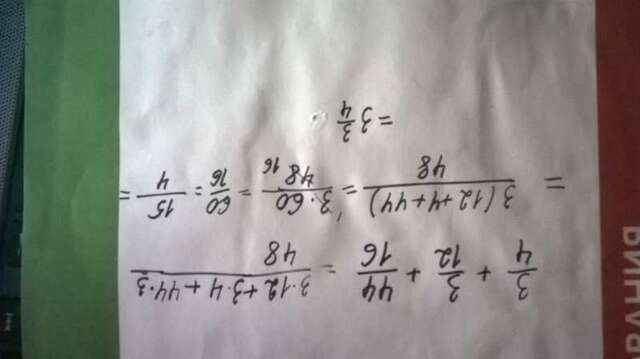 3/4 + 3/12 + 44/16 = (3·12+3·4+44·3)/48
= 3(12+4+44)/48 = 3·60/48 16 = 60/16 = 15/4 =
= 3 3/4